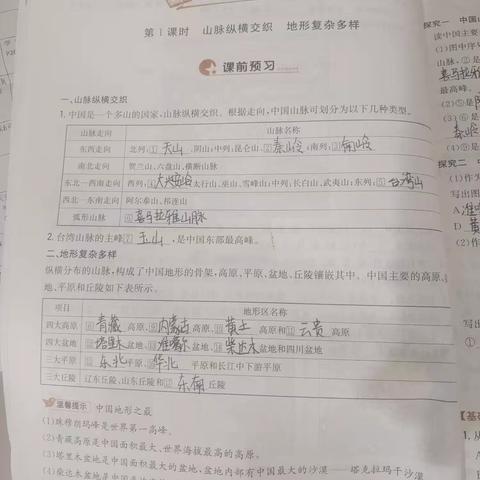 第1课时 山脉纵横交织 地形复杂多样
课前预习
一、山脉纵横交织
1.中国是一个多山的国家,山脉纵横交织。根据走向,中国山脉可划分为以下几种类型。
山脉走向 山脉名称
东西走向 北列:①天山、阴山;中列:昆仑山、②秦岭;南列:③南岭
南北走向 贺兰山、六盘山、横断山脉
东北—西南走向 西列:④大兴安岭、太行山、巫山、雪峰山;中列:长白山、武夷山;东列:⑤台湾山
西北—东南走向 阿尔泰山、祁连山
弧形山脉 ⑥喜马拉雅山脉
2.台湾山脉的主峰⑦玉山,是中国东部最高峰。
二、地形复杂多样
纵横分布的山脉,构成了中国地形的骨架,高原、平原、盆地、丘陵镶嵌其中。中国主要的高原、
地、平原和丘陵如下表所示。
项目 地形区名称
四大高原 ⑧青藏高原、⑨内蒙古高原、⑩黄土高原和⑪云贵高原
四大盆地 ⑫塔里木盆地、⑬准噶尔盆地、⑭柴达木盆地和四川盆地
三大平原 ⑮东北平原、⑯华北平原和长江中下游平原
三大丘陵 辽东丘陵、山东丘陵和⑰东南丘陵
温馨提示 中国地形之最
(1)珠穆朗玛峰是世界第一高峰。
(2)青藏高原是中国面积最大、世界海拔最高的高原。
(3)塔里木盆地是中国面积最大的盆地,盆地内部有中国最大的沙漠——塔克拉玛干沙漠
(4)柴达木盆地是中国地
探究一 中国山
读中国主要
(1)图中序号
山脉,②是
喜马拉雅
最高峰。
(2)⑤是
(3)⑥是
秦岭
探究二 中
(1)作为
写出图
A.准
D.黄
(2)作
写出
①
【基础
1.从